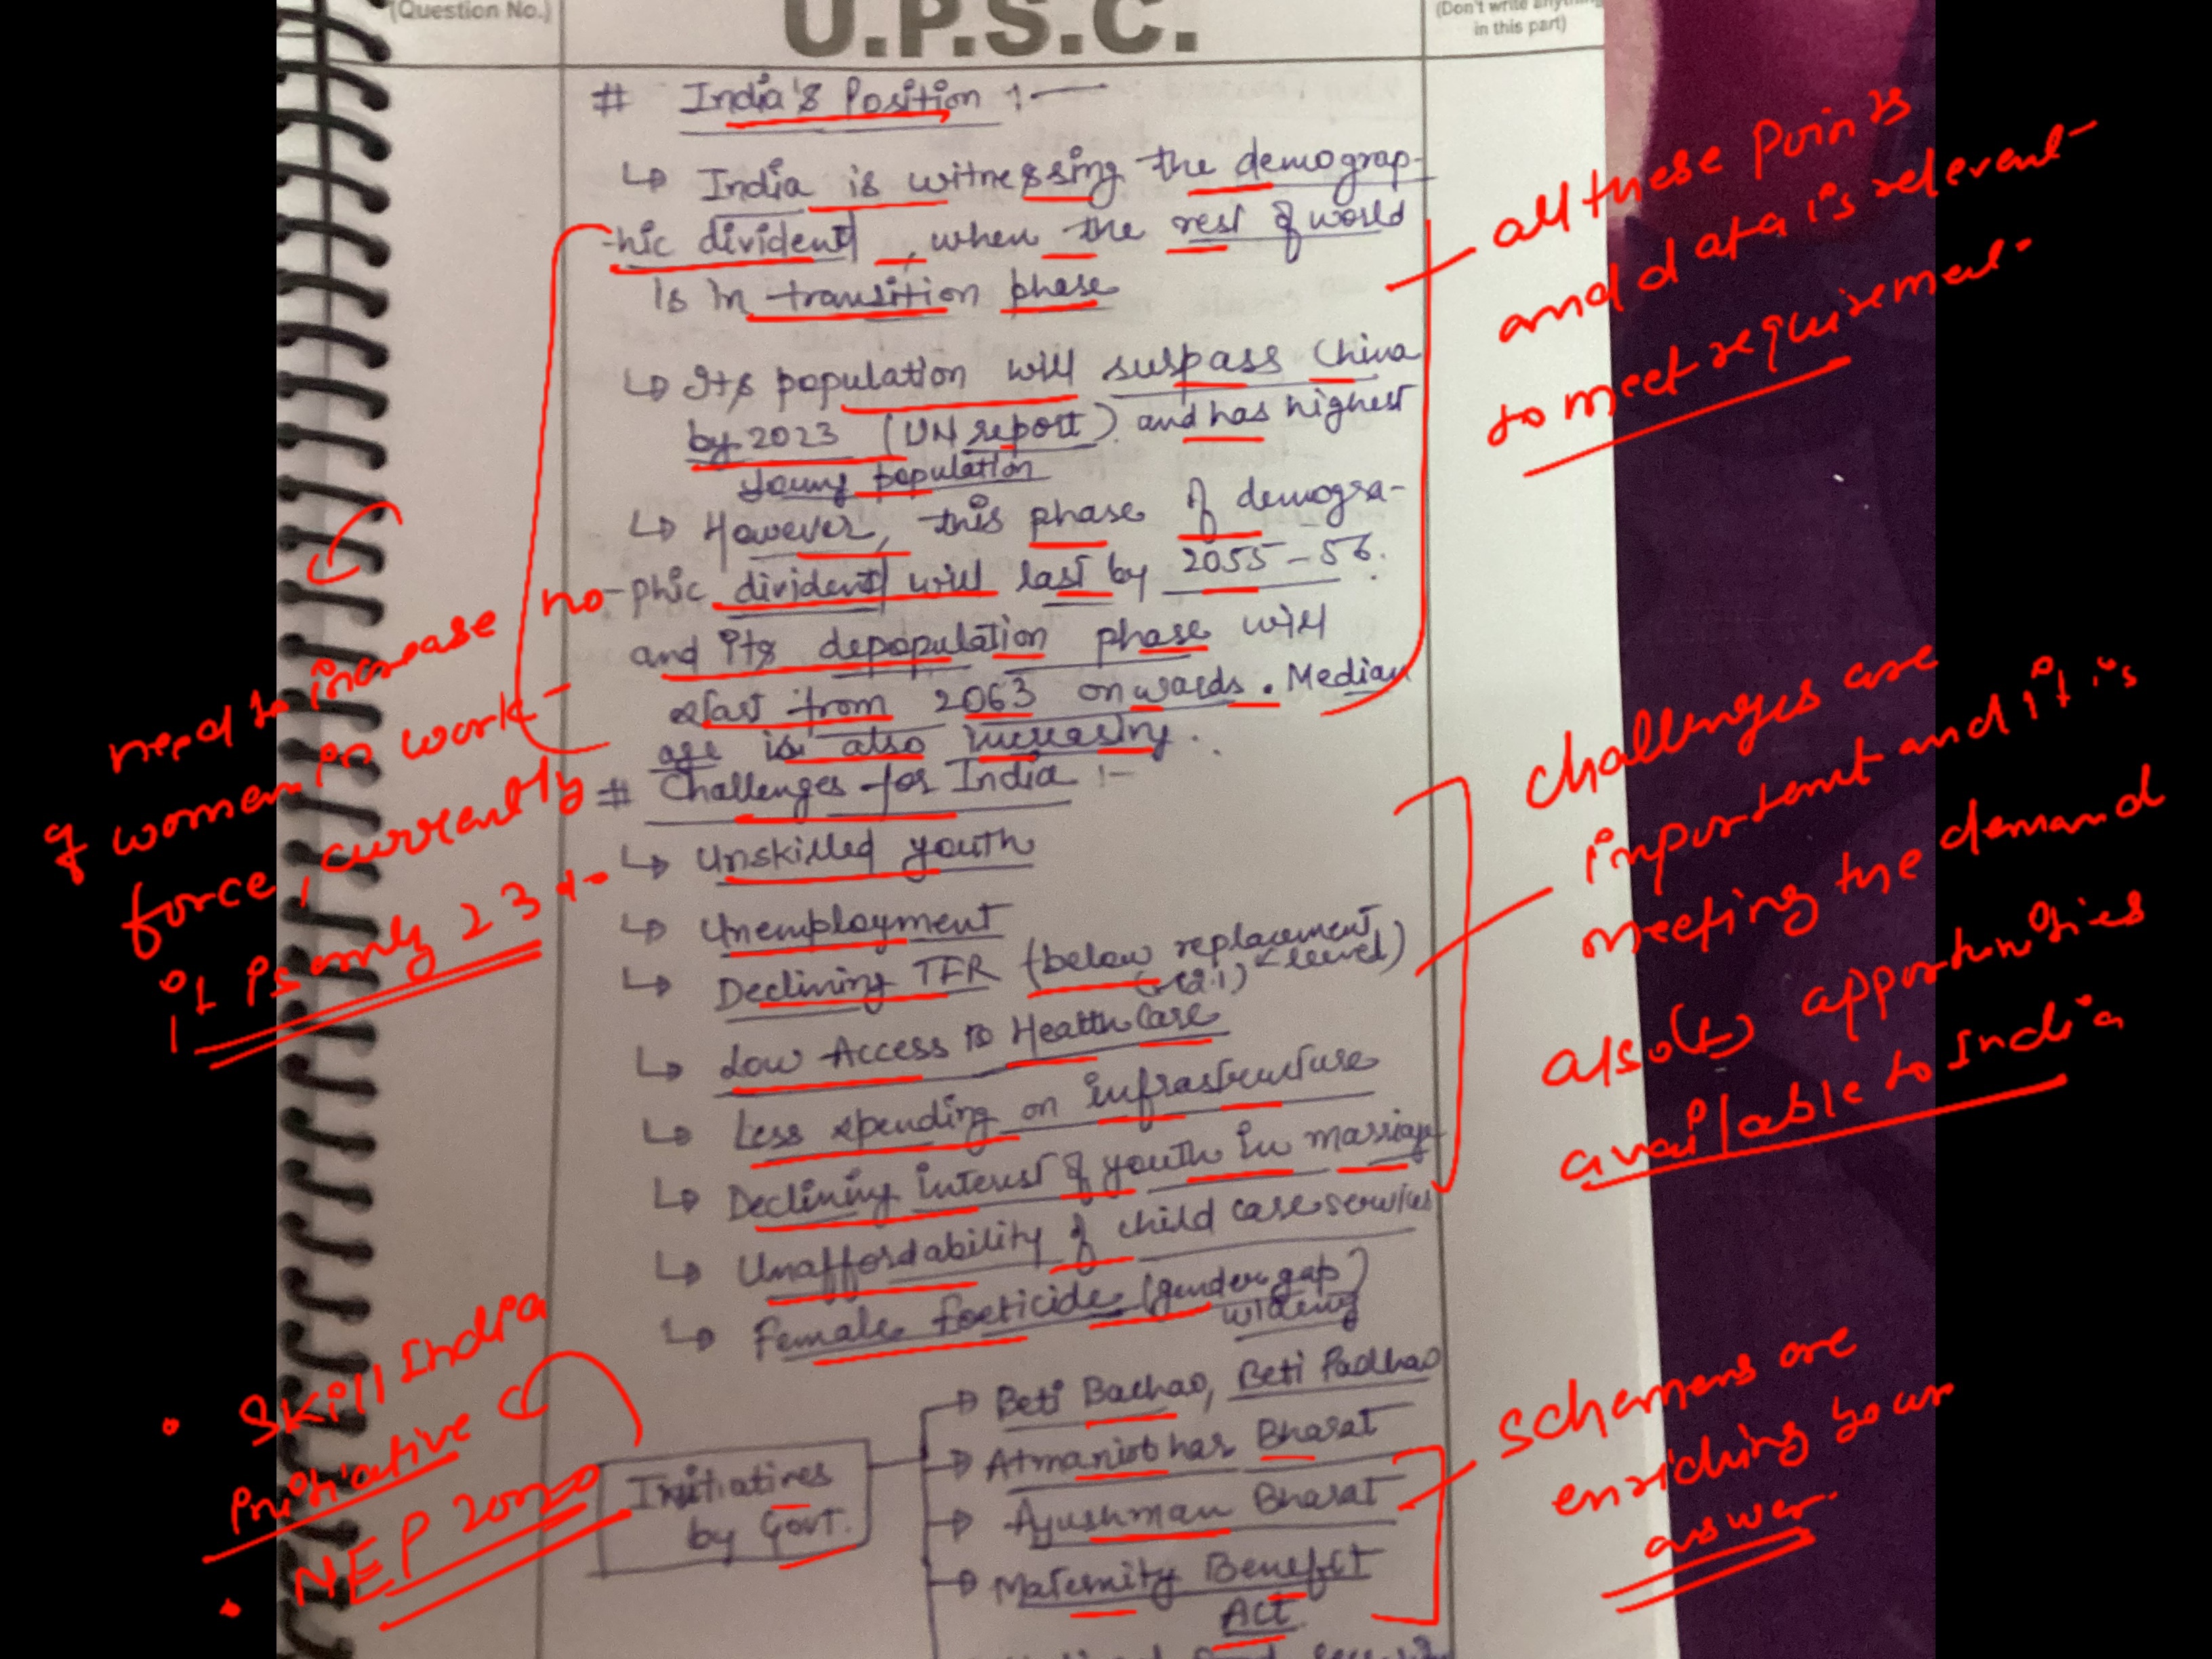 (Question No.)
U.P.S.C.
(Don't write anything
in this part)
# India's Position :-
↳ India is witnessing the demograp-
-hic divident, when the rest of world
is in transition phase
↳ Its population will surpass China
by 2023 (UN report) and has highest
young population
↳ However, this phase of demogra-
-phic divident will last by 2055-56.
and its depopulation phase will
start from 2063 onwards. Median
age is also increasing.
# Challenges for India :-
↳ Unskilled youth
↳ Unemployment
↳ Declining TFR (below replacement
(2.1) ← level)
↳ Low Access to Healthcare
↳ Less spending on infrastructure
↳ Declining interest of youth in marriage
↳ Unaffordability of child care services
↳ Female foeticide (gender gap)
widening
Initiatives
by Govt.
→ Beti Bachao, Beti Padhao
→ Atmanirbhar Bharat
→ Ayushman Bharat
→ Maternity Benefit
Act
all these points
and data is relevent-
to meet requirement-
need to increase no-
of women in work-
force, currently
it is only 23%
challenges are
important and it is
meeting the demand
also(t) apportunities
available to India
• Skill India
initiative
• NEP 2020
schemens are
enriching your
answer.